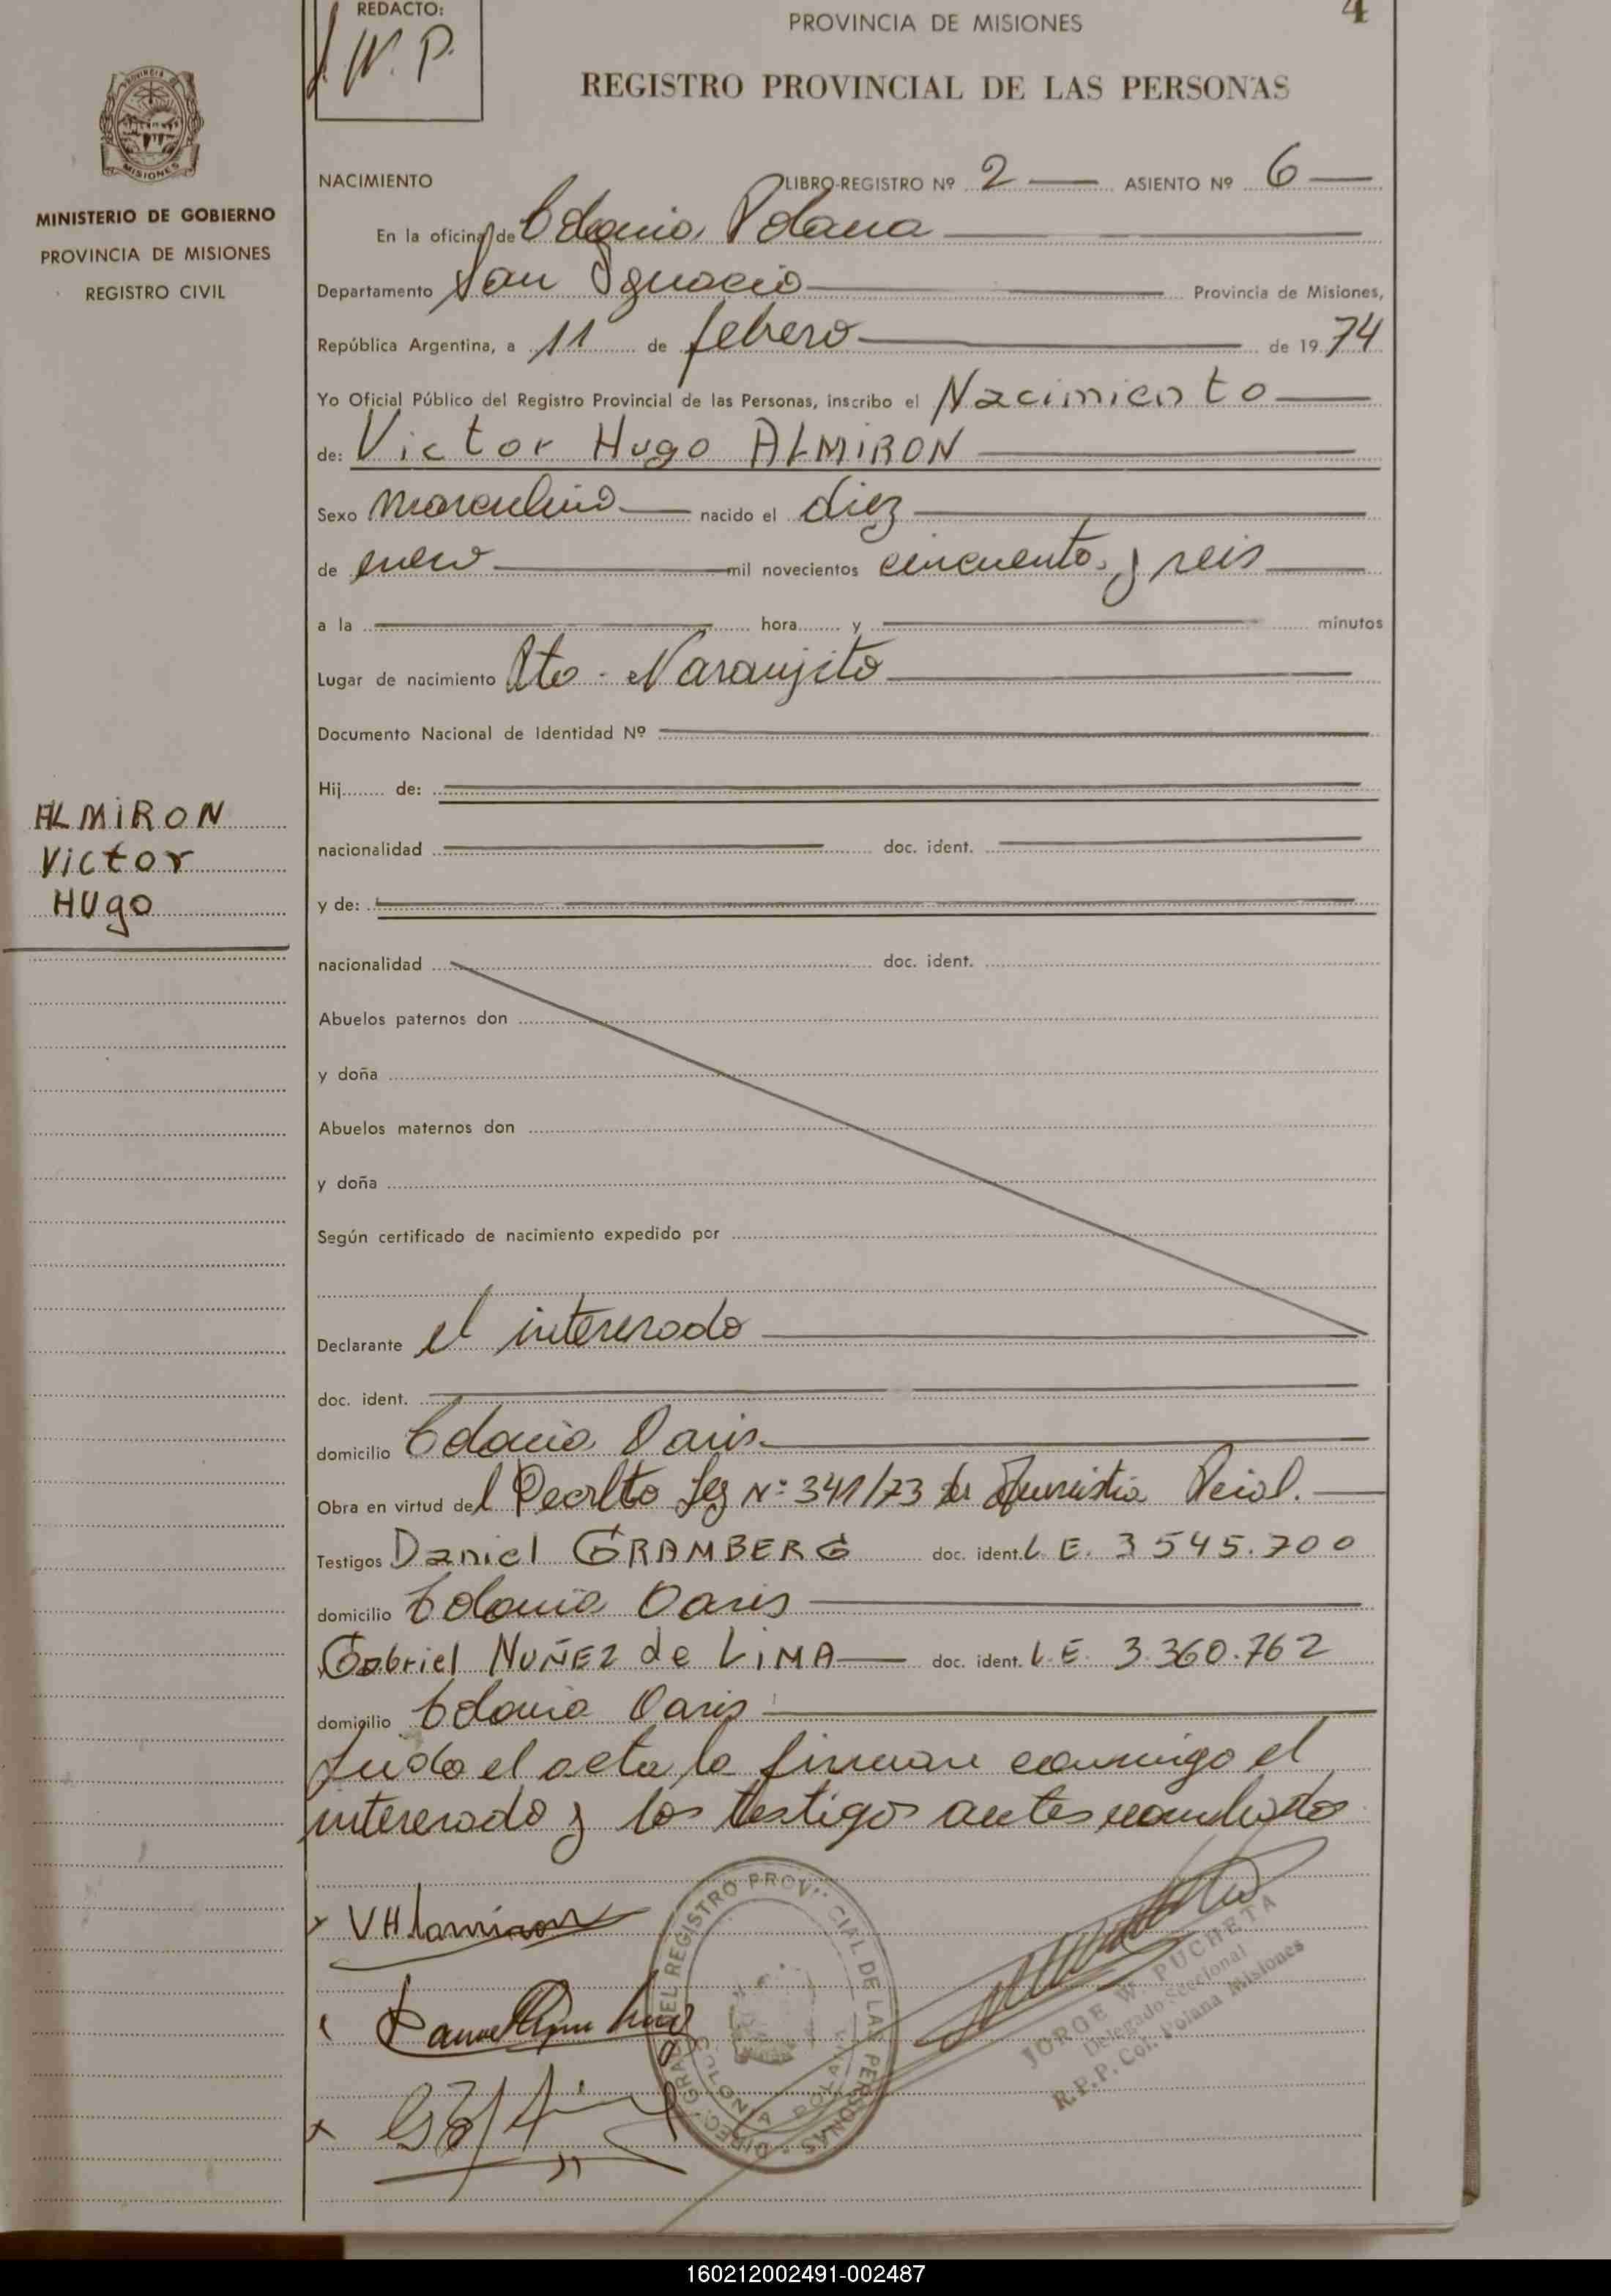 REDACTO:
J. W. P.
PROVINCIA DE MISIONES
4
REGISTRO PROVINCIAL DE LAS PERSONAS
PROVINCIA
MISIONES
MINISTERIO DE GOBIERNO
PROVINCIA DE MISIONES
REGISTRO CIVIL
NACIMIENTO LIBRO-REGISTRO Nº 2 ASIENTO Nº 6
En la oficina de Colonia Polana
Departamento San Ignacio Provincia de Misiones,
República Argentina, a 11 de febrero de 1974
Yo Oficial Público del Registro Provincial de las Personas, inscribo el Nacimiento
de: Victor Hugo ALMIRON
Sexo masculino nacido el diez
de enero mil novecientos cincuenta y seis
a la hora y minutos
Lugar de nacimiento Pto. Naranjito
Documento Nacional de Identidad Nº
Hij de:
ALMIRON
Victor
Hugo
nacionalidad doc. ident.
y de:
nacionalidad doc. ident.
Abuelos paternos don
y doña
Abuelos maternos don
y doña
Según certificado de nacimiento expedido por
Declarante el interesado
doc. ident.
domicilio Colonia Oasis
Obra en virtud del Decreto Ley Nº 341/73 de Amnistia Pcial.
Testigos Daniel GRAMBERG doc. ident. L.E. 3545.700
domicilio Colonia Oasis
Gabriel NUÑEZ de LIMA doc. ident. L.E. 3.360.762
domicilio Colonia Oasis
Leida el acta la firman conmigo el
interesado y los testigos antes nombrados
DIREC. GRAL. DEL REGISTRO PROVINCIAL DE LAS PERSONAS
COLONIA POLANA
JORGE W. PUCHETA
Delegado Seccional
R.P.P. Col. Polana Misiones
160212002491-002487